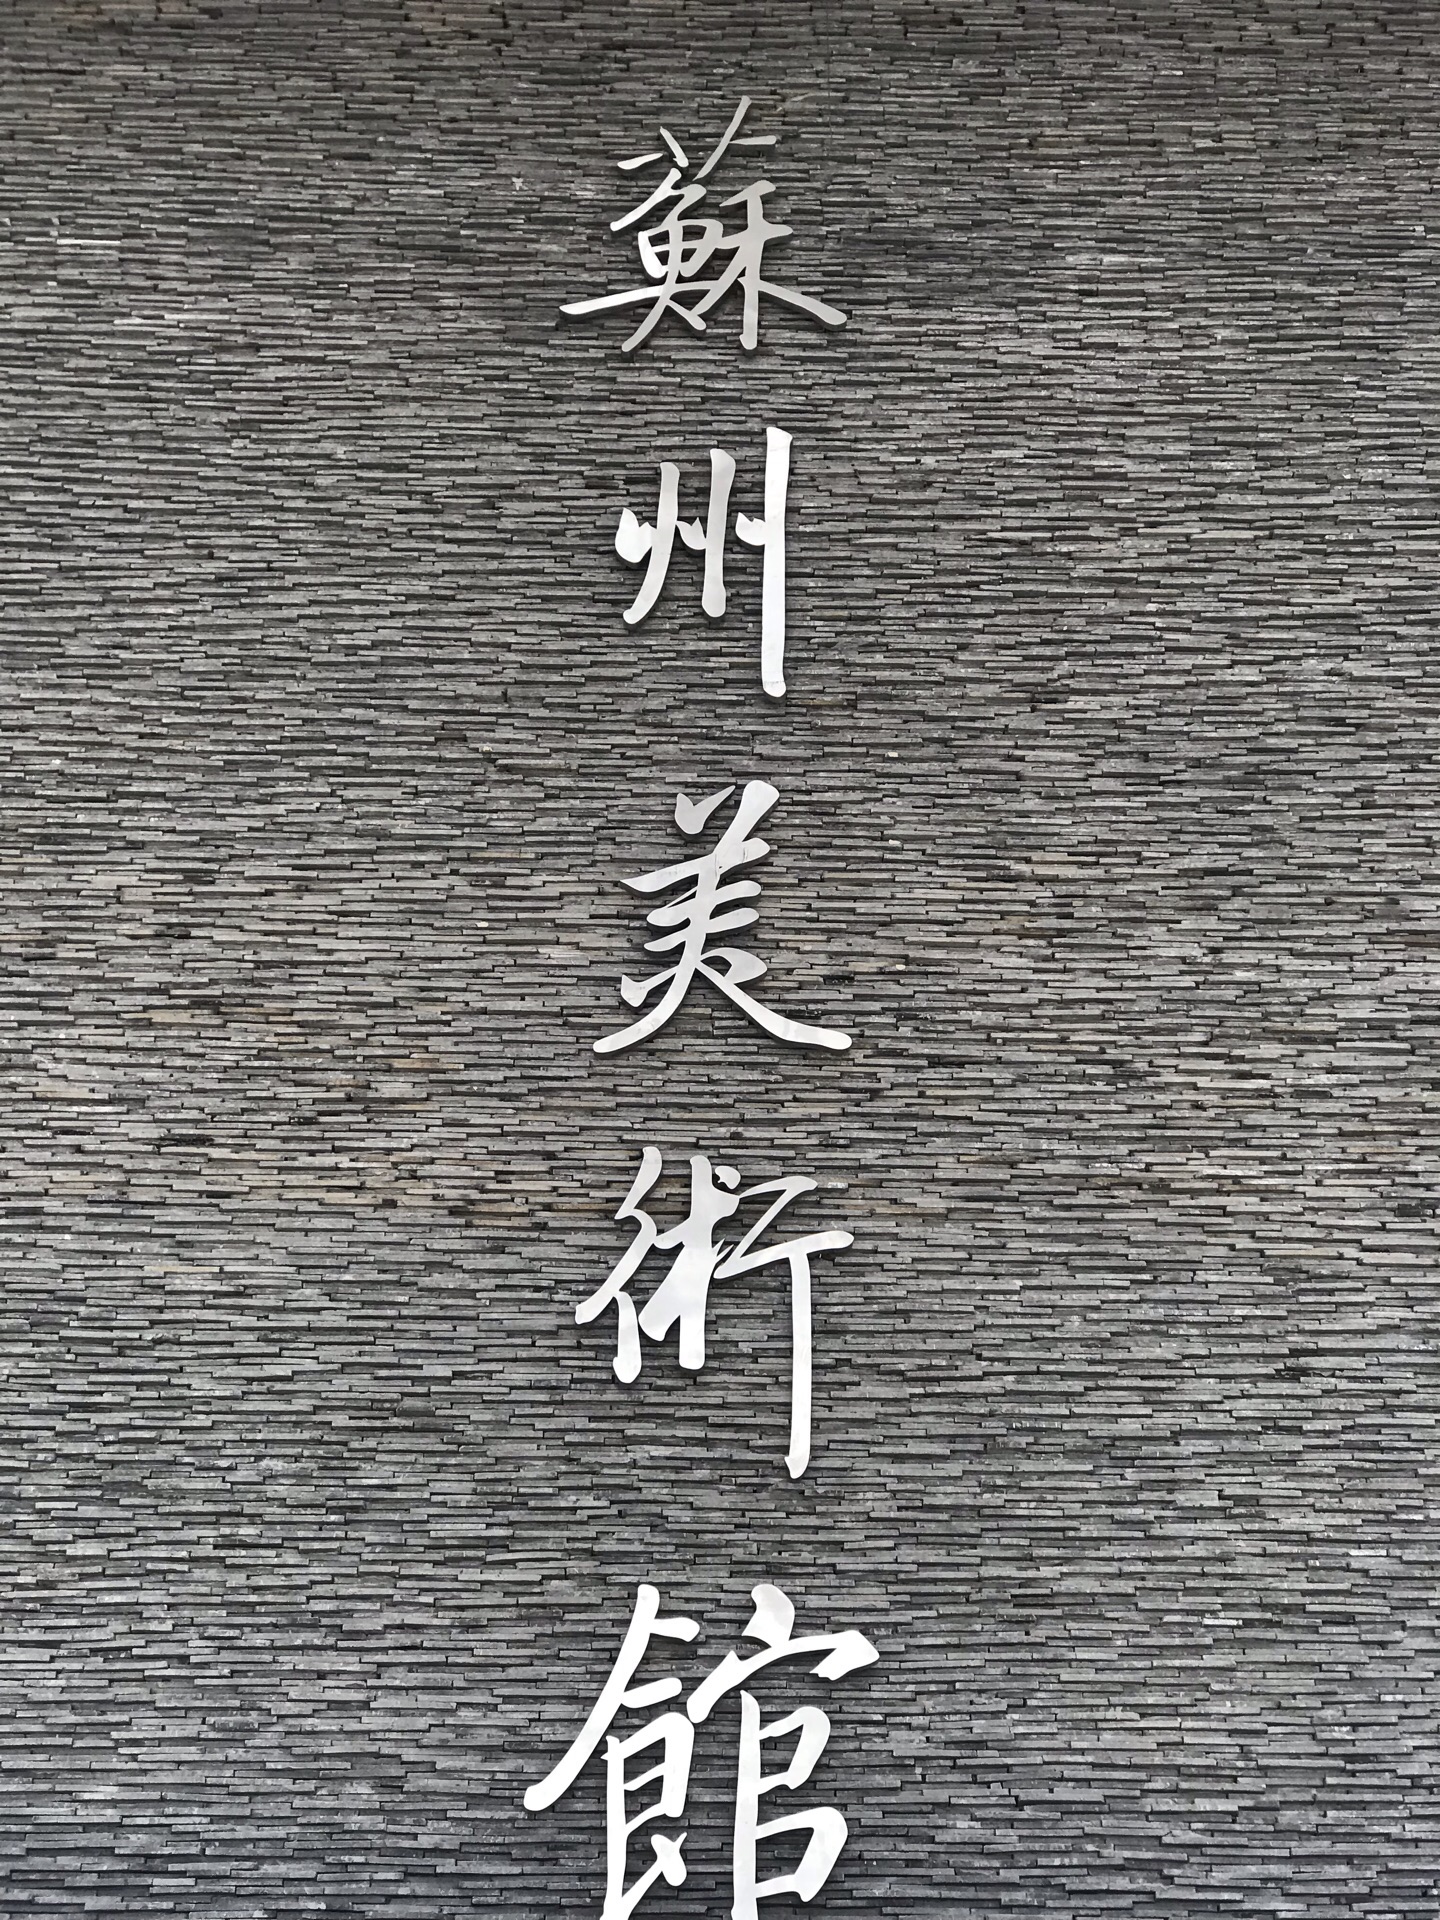 蘇州美術館